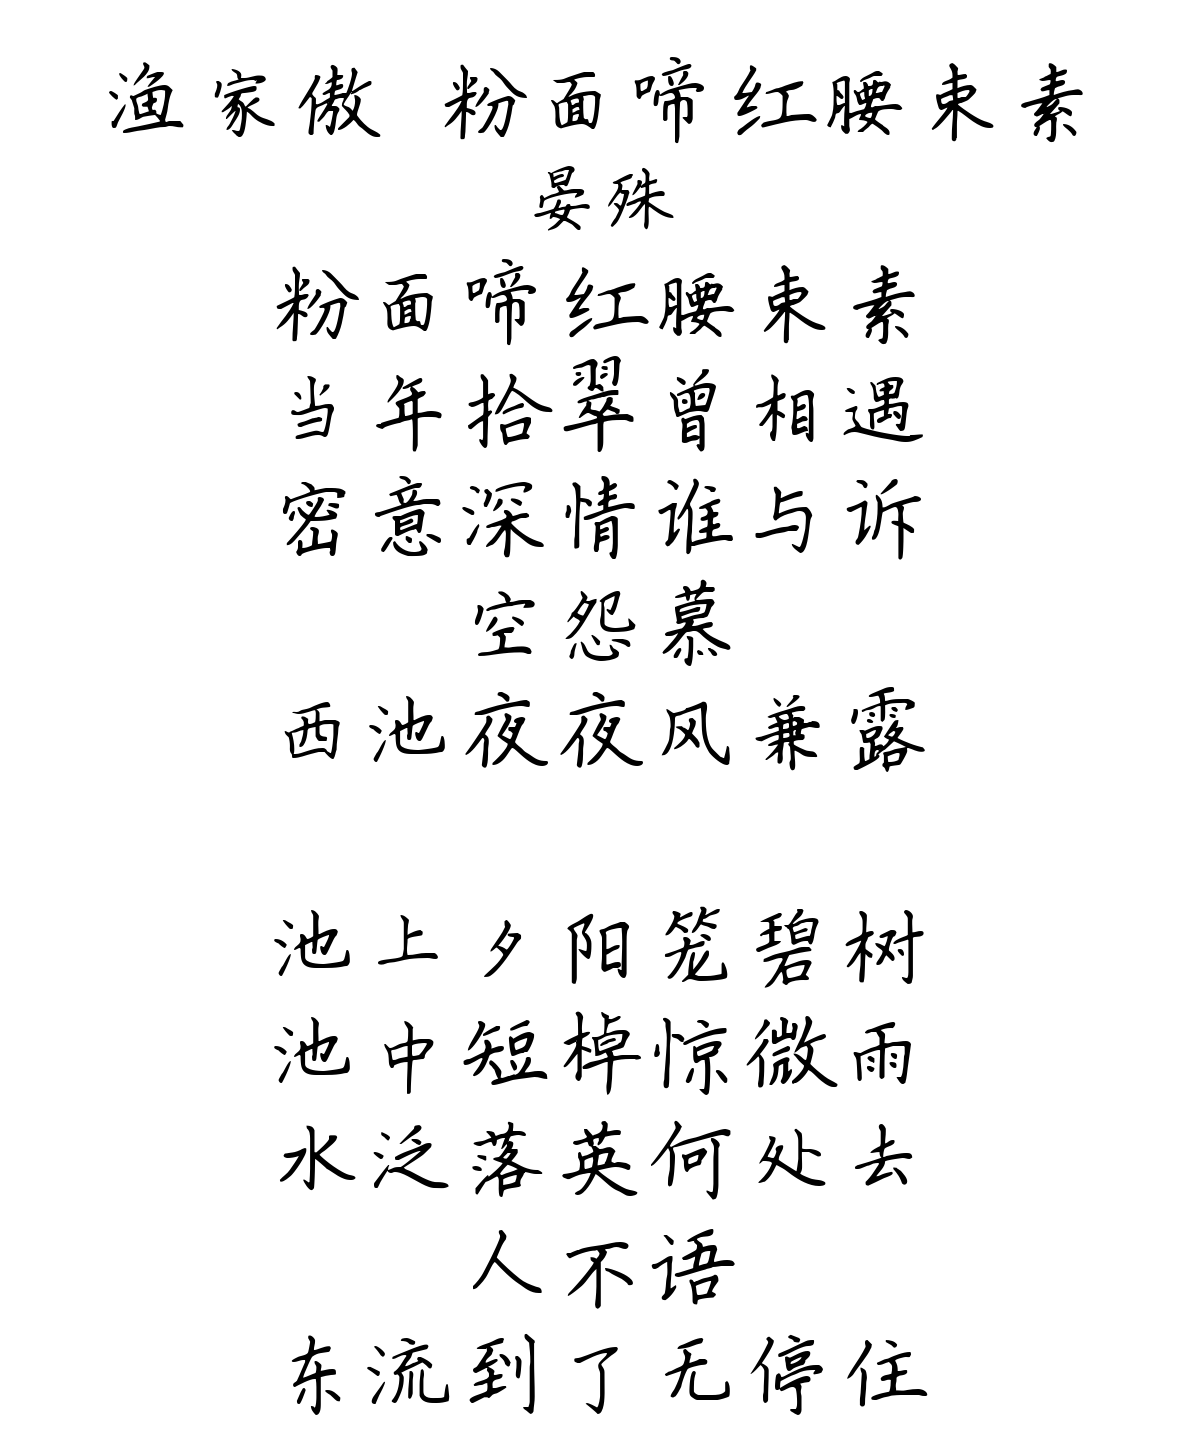 渔家傲 粉面啼红腰束素
晏殊
粉面啼红腰束素
当年拾翠曾相遇
密意深情谁与诉
空怨慕
西池夜夜风兼露
池上夕阳笼碧树
池中短棹惊微雨
水泛落英何处去
人不语
东流到了无停住